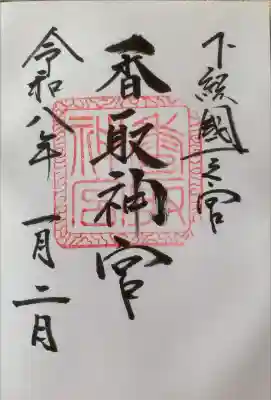 下総國一之宮
香取神宮
令和八年一月二日